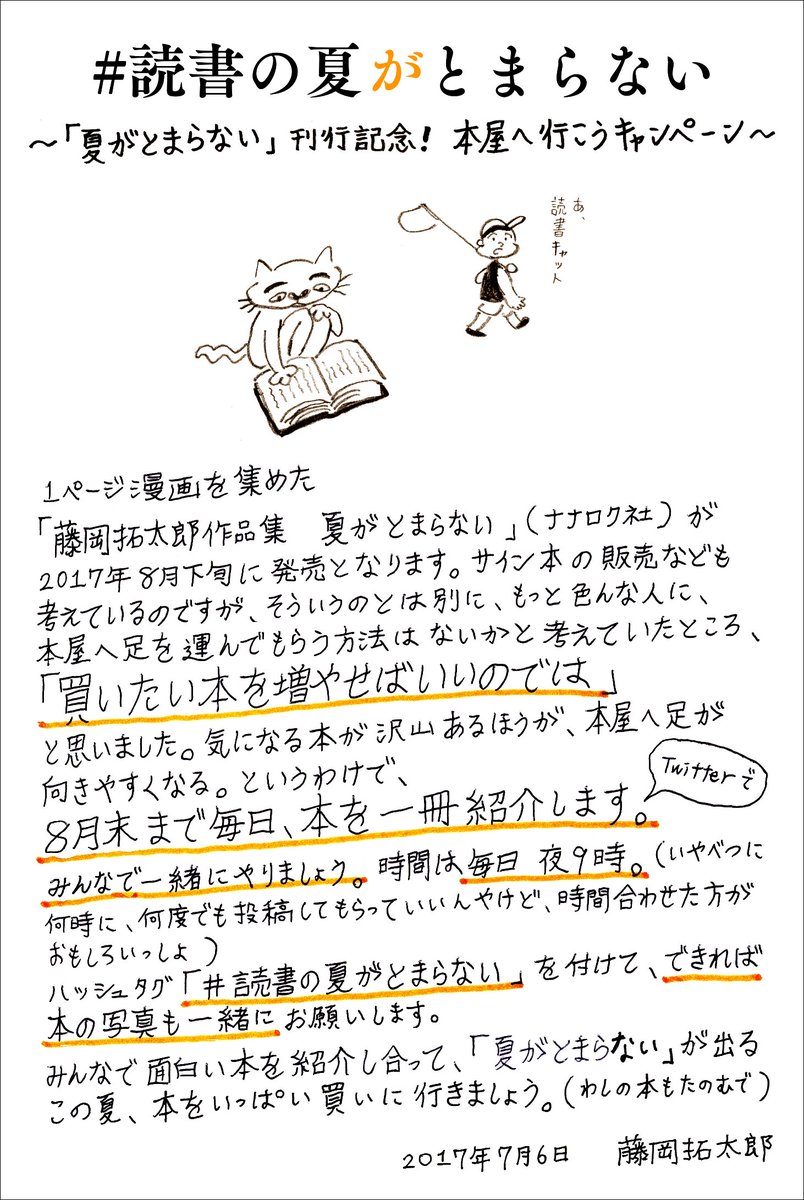 #読書の夏がとまらない
～「夏がとまらない」刊行記念！ 本屋へ行こうキャンペーン～
あ、
読書キャット
1ページ漫画を集めた
「藤岡拓太郎作品集　夏がとまらない」（ナナロク社）が
2017年8月下旬に発売となります。サイン本の販売なども
考えているのですが、そういうのとは別に、もっと色んな人に、
本屋へ足を運んでもらう方法はないかと考えていたところ、
「買いたい本を増やせばいいのでは」
と思いました。気になる本が沢山あるほうが、本屋へ足が
向きやすくなる。というわけで、
Twitterで
8月末まで毎日、本を一冊紹介します。
みんなで一緒にやりましょう。時間は毎日 夜9時。（いやべつに
何時に、何度でも投稿してもらっていいんやけど、時間合わせた方が
おもしろいっしょ）
ハッシュタグ「#読書の夏がとまらない」を付けて、できれば
本の写真も一緒にお願いします。
みんなで面白い本を紹介し合って、「夏がとまらない」が出る
この夏、本をいっぱい買いに行きましょう。（わしの本もたのむで）
2017年7月6日　藤岡拓太郎